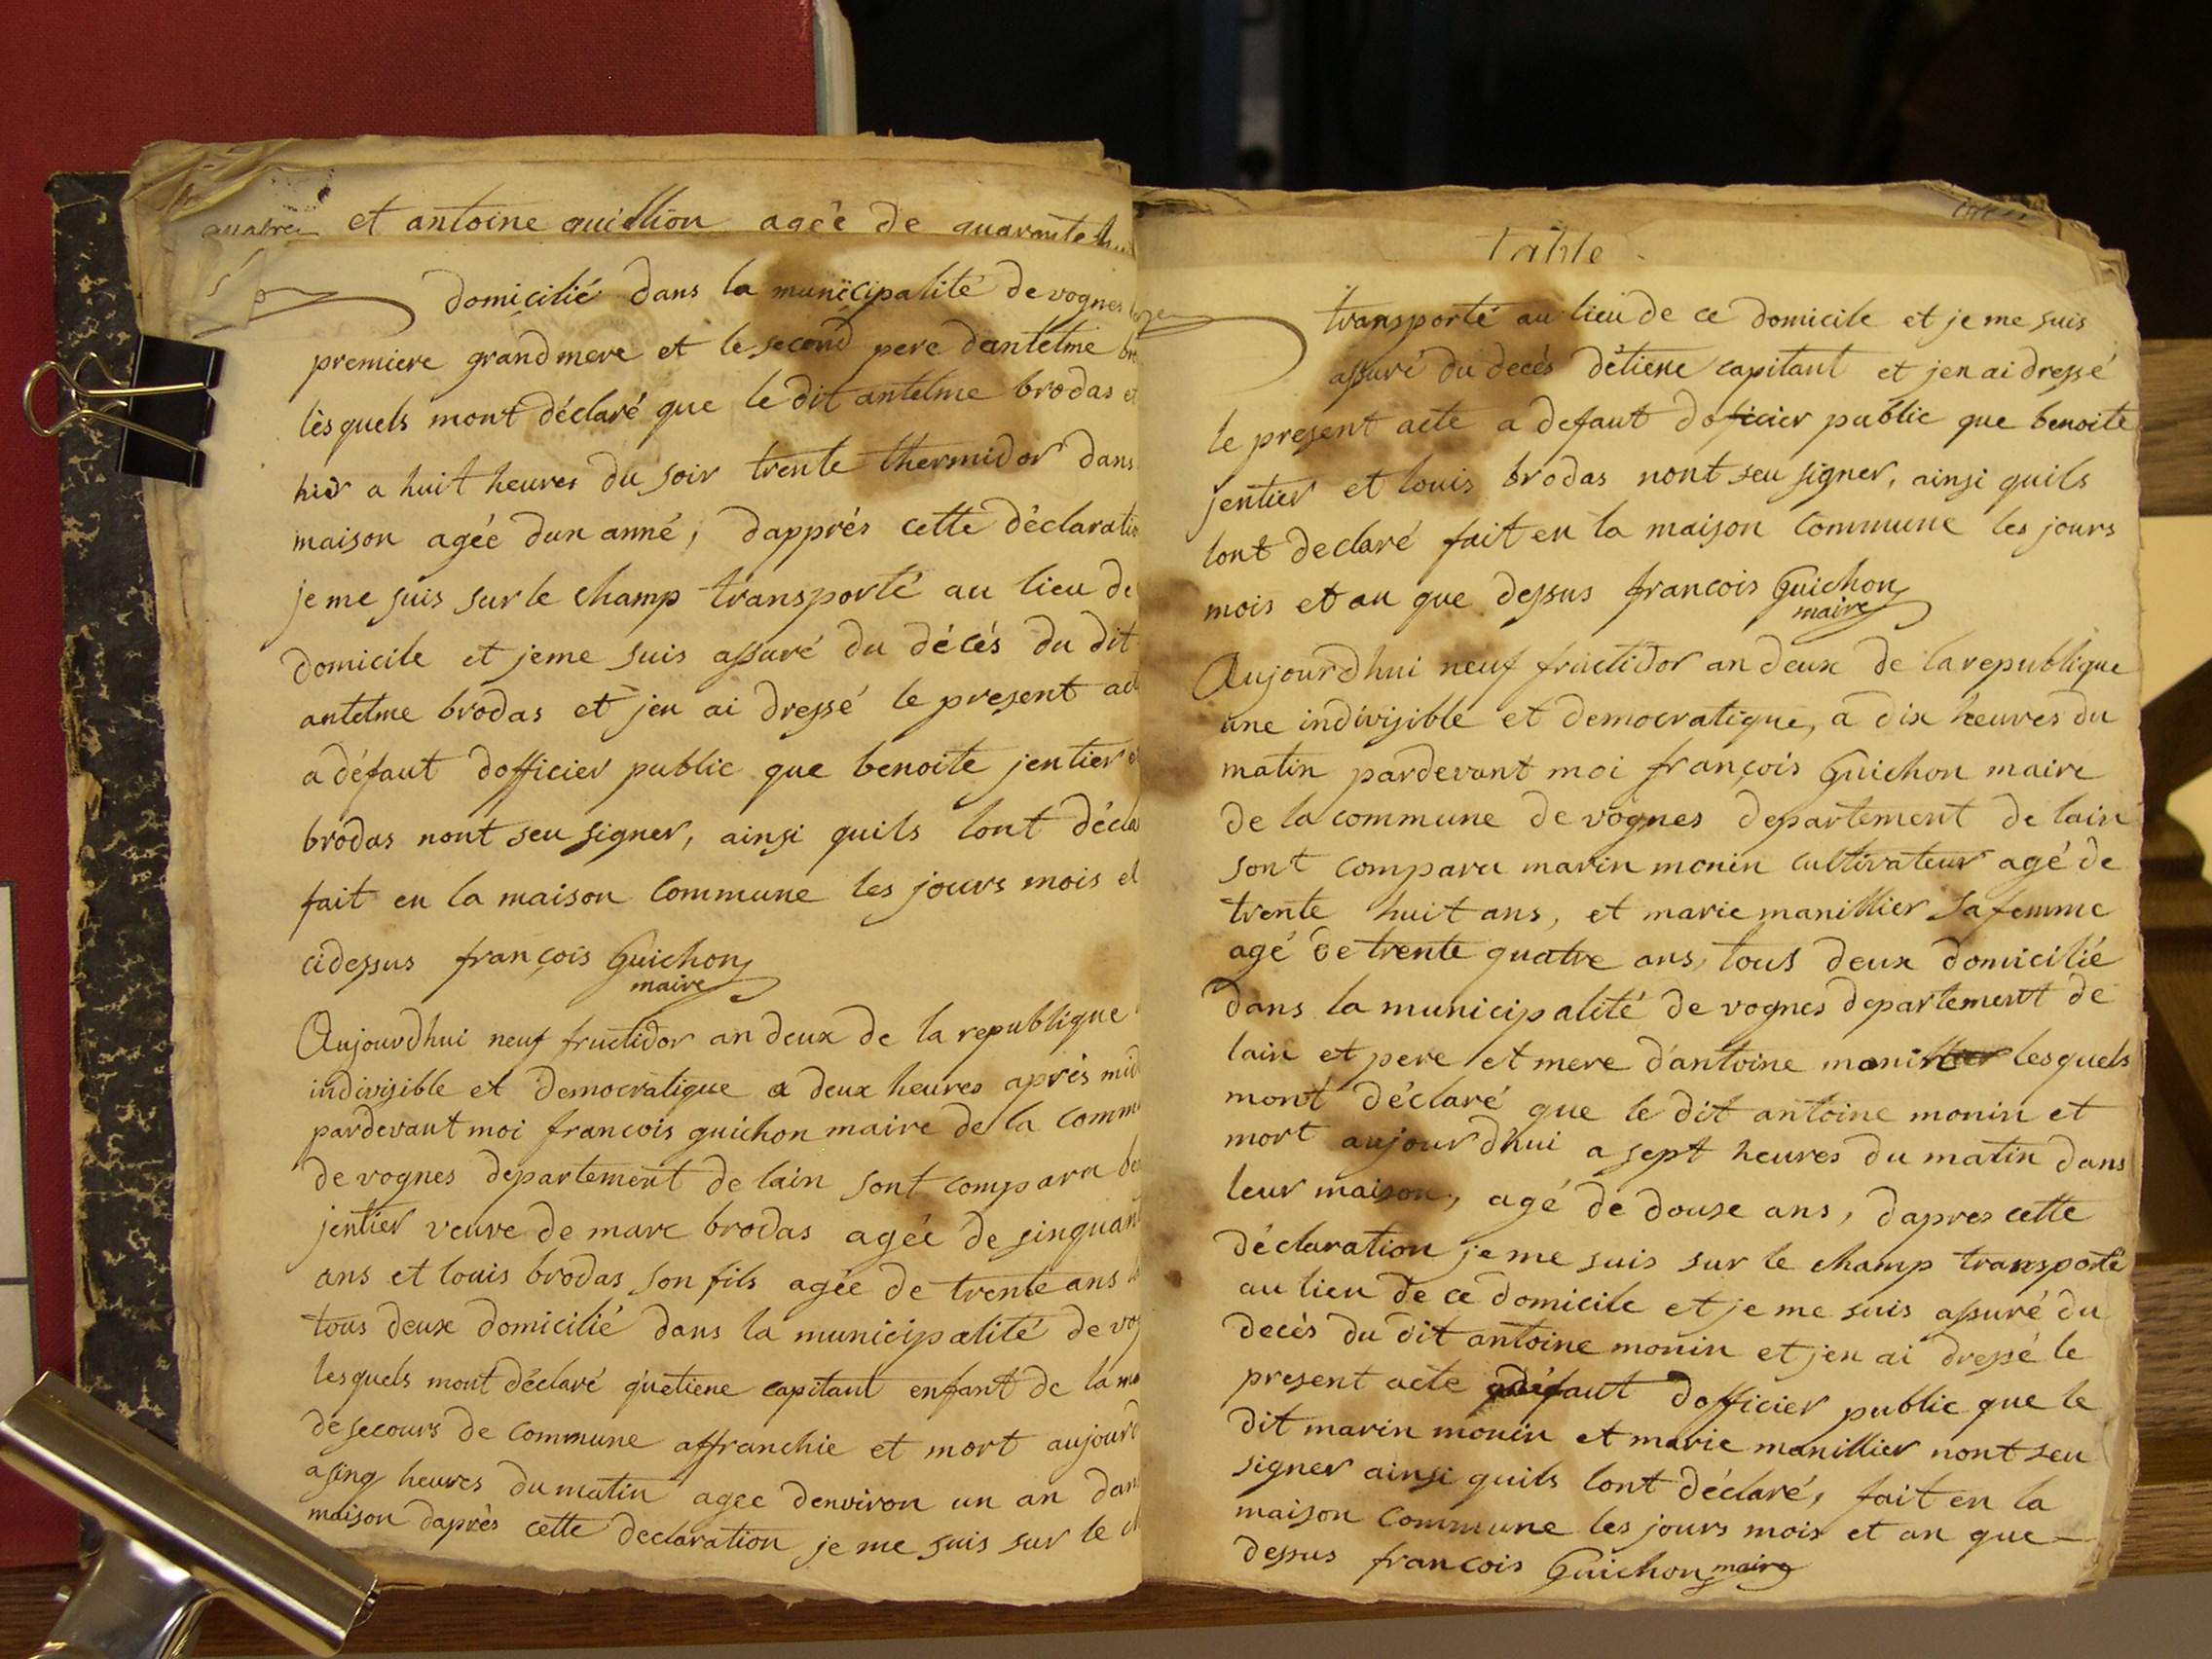 et antoine guillion agée de quarante
domicilié dans la municipalité de vognes
premiere grandmere et le second pere dantelme
lèsquels mont déclaré que le dit antelme brodas
hier a huit heures du soir trente thermidor dans
maison agée dun anné, dapprés cette déclaratio
je me suis sur le champ transporté au lieu de
domicile et jeme suis assuré du décés du dit
antelme brodas et jen ai dressé le present
a défaut dofficier public que benoite jentier
brodas nont seu signer, ainsi quils lont décla
fait en la maison commune les jours mois et
cidessus françois Guichon
maire
Aujourdhui neuf fructidor an deux de la republique
indivisible et democratique a deux heures aprés mid
pardevant moi francois guichon maire de la comm
de vognes departement de lain sont comparu
jentier veuve de marc brodas agée de sinquan
ans et louis brodas son fils agée de trente ans
tous deux domicilié dans la municipalité de vog
lesquels mont déclaré quetiene capitant enfant de la
desecours de commune affranchie et mort aujourd
a sinq heures du matin agee denviron un an dans
maison daprès cette declaration je me suis sur le
table
transporté au lieu de ce domicile et je me suis
assuré du decés détiene capitant et jen ai dressé
le present acte a defaut doficier public que benoite
jentier et louis brodas nont seu signer, ainsi quils
lont declaré fait en la maison commune les jours
mois et an que dessus francois Guichon
maire
Aujourdhui neuf fructidor an deux de la republique
une indivisible et democratique, a dix heures du
matin pardevant moi françois Guichon maire
de la commune de vognes departement de lain
sont comparu marin monin cultivateur agé de
trente huit ans, et marie manillier sa femme
agé de trente quatre ans, tous deux domicilié
dans la municipalité de vognes departement de
lain et pere et mere d'antoine lesquels
mont déclaré que le dit antoine monin et
mort aujourd'hui a sept heures du matin dans
leur maison, agé de douse ans, dapres cette
déclaration je me suis sur le champ transporté
au lieu de ce domicile et je me suis assuré du
decès du dit antoine monin et jen ai dressé le
present acte adéfaut dofficier public que le
dit marin monin et marie manillier nont seu
signer ainsi quils lont déclaré, fait en la
maison commune les jours mois et an que
dessus francois Guichon maire